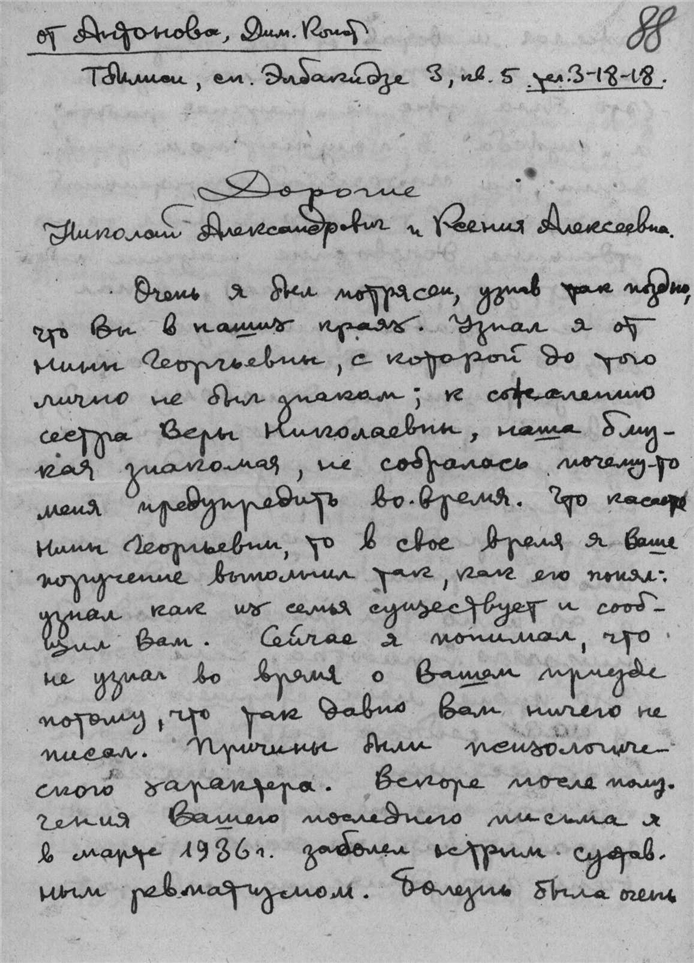 88
от Антонова, Дим. Конст.
Тбилиси, сп. Элбакидзе 3, кв. 5 тел. 3-18-18.
Дорогие
Николай Александрович и Ксения Алексеевна.
Очень я был потрясен, узнав так поздно,
что Вы в наших краях. Узнал я от
Нины Георгьевны, с которой до того
лично не был знаком; к сожалению
сестра Веры Николаевны, наша близ-
кая знакомая, не собралась почему-то
меня предупредить во-время. Что касается
Нины Георгьевны, то в свое время я Ваше
поручение выполнил так, как его понял:
узнал как их семья существует и сооб-
щил Вам. Сейчас я понимаю, что
не узнал во время о Вашем приезде
потому, что так давно Вам ничего не
писал. Причины были психологиче-
ского характера. Вскоре после полу-
чения Вашего последнего письма я
в марте 1936 г. заболел острым сустав-
ным ревматизмом. Болезнь была очень